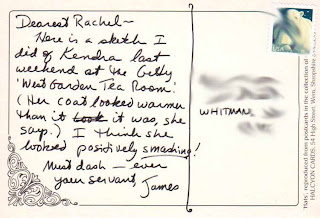 Dearest Rachel—
Here is a sketch I
did of Kendra last
weekend at the Getty
'West Garden Tea Room.'
(Her coat looked warmer
than it look it was, she
says.) I think she
looked positively smashing!
Must dash — ever
your servant, James
WHITMAN,
'Hats', reproduced from postcards in the collection of
HALCYON CARDS, 54 High Street, Wem, Shropshire